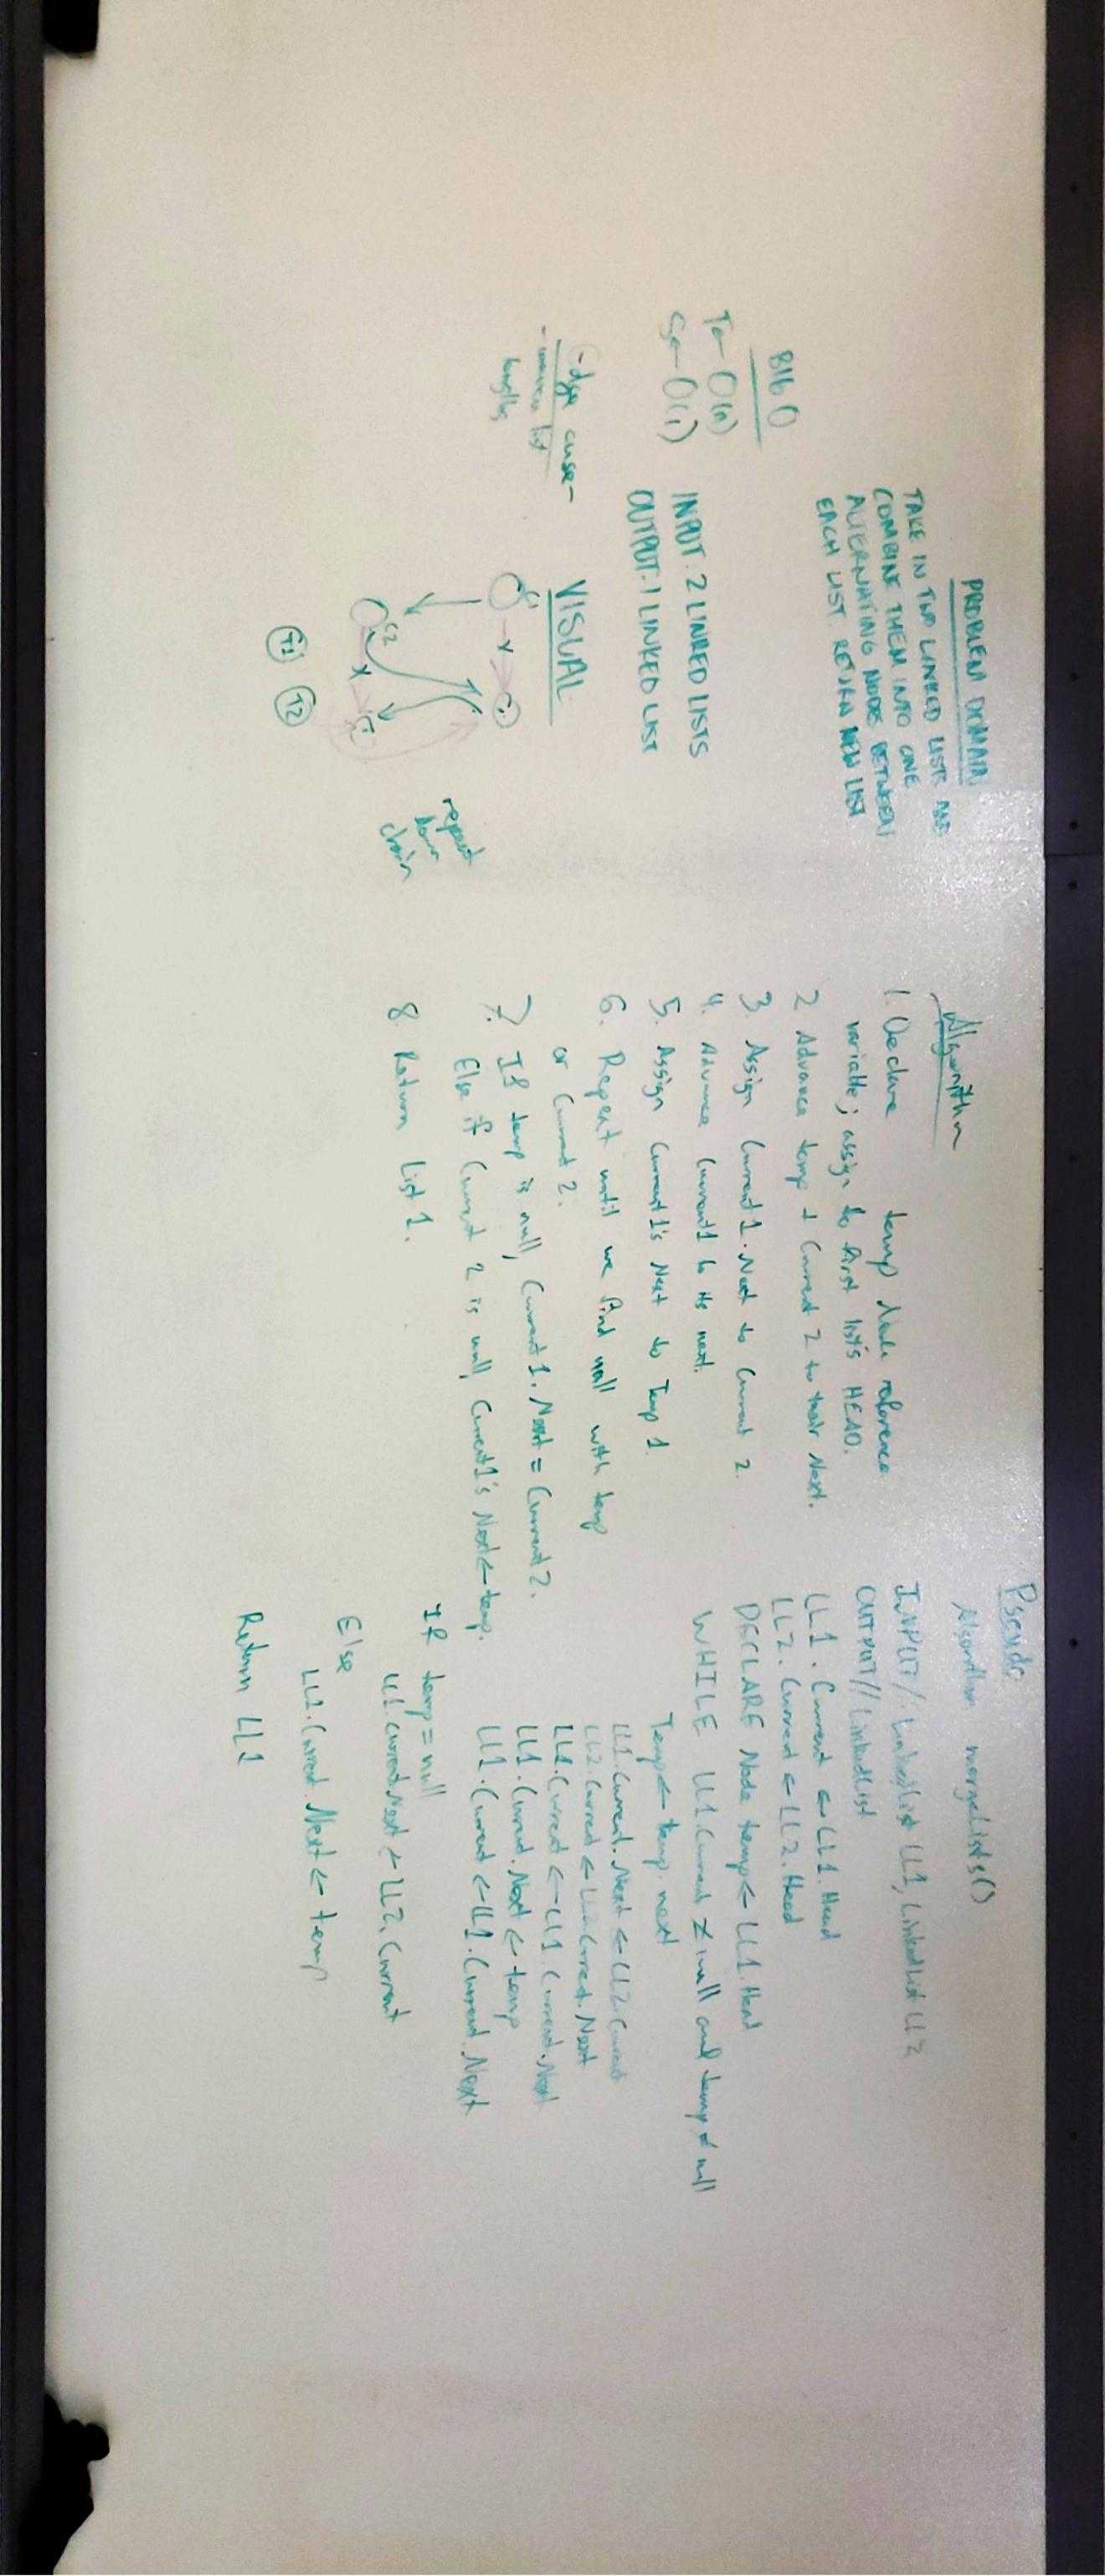 PROBLEM DOMAIN
TAKE IN TWO LINKED LISTS AND
COMBINE THEM INTO ONE
ALTERNATING NODES BETWEEN
EACH LIST. RETURN NEW LIST
BIG O
T← O(n)
S← O(1)
INPUT. 2 LINKED LISTS
OUTPUT. 1 LINKED LIST
Edge case-
- uneven list
lengths
VISUAL
C1
x
C2
x
T1 T2
repeat
down
chain
Algorithm
1. Declare temp Node reference
variable; assign to first list's HEAD.
2 Advance temp + Current 2 to their Next.
3. Assign Current1.Next to Current 2.
4. Advance Current1 to its next.
5. Assign Current1's Next to Temp 1.
6. Repeat until we find null with temp
or Current 2.
7. If temp is null, Current1.Next = Current2.
Else if Current 2 is null, Current1's Next← temp.
8. Return List 1.
Pseudo
Algorithm mergeLists()
INPUT// LinkedList LL1, LinkedList LL2
OUTPUT// LinkedList
LL1.Current ← LL1.Head
LL2.Current ← LL2.Head
DECLARE Node temp← LL1.Head
WHILE LL1.Current ≠ null and temp ≠ null
Temp← temp.next
LL1.Current.Next ← LL2.Current
LL2.Current ← Current.Next
LL1.Current ← LL1.Current.Next
LL1.Current.Next ← temp
LL1.Current ← LL1.Current.Next
If temp = null
LL1.Current.Next ← LL2.Current
Else
LL1.Current.Next ← temp
Return LL1